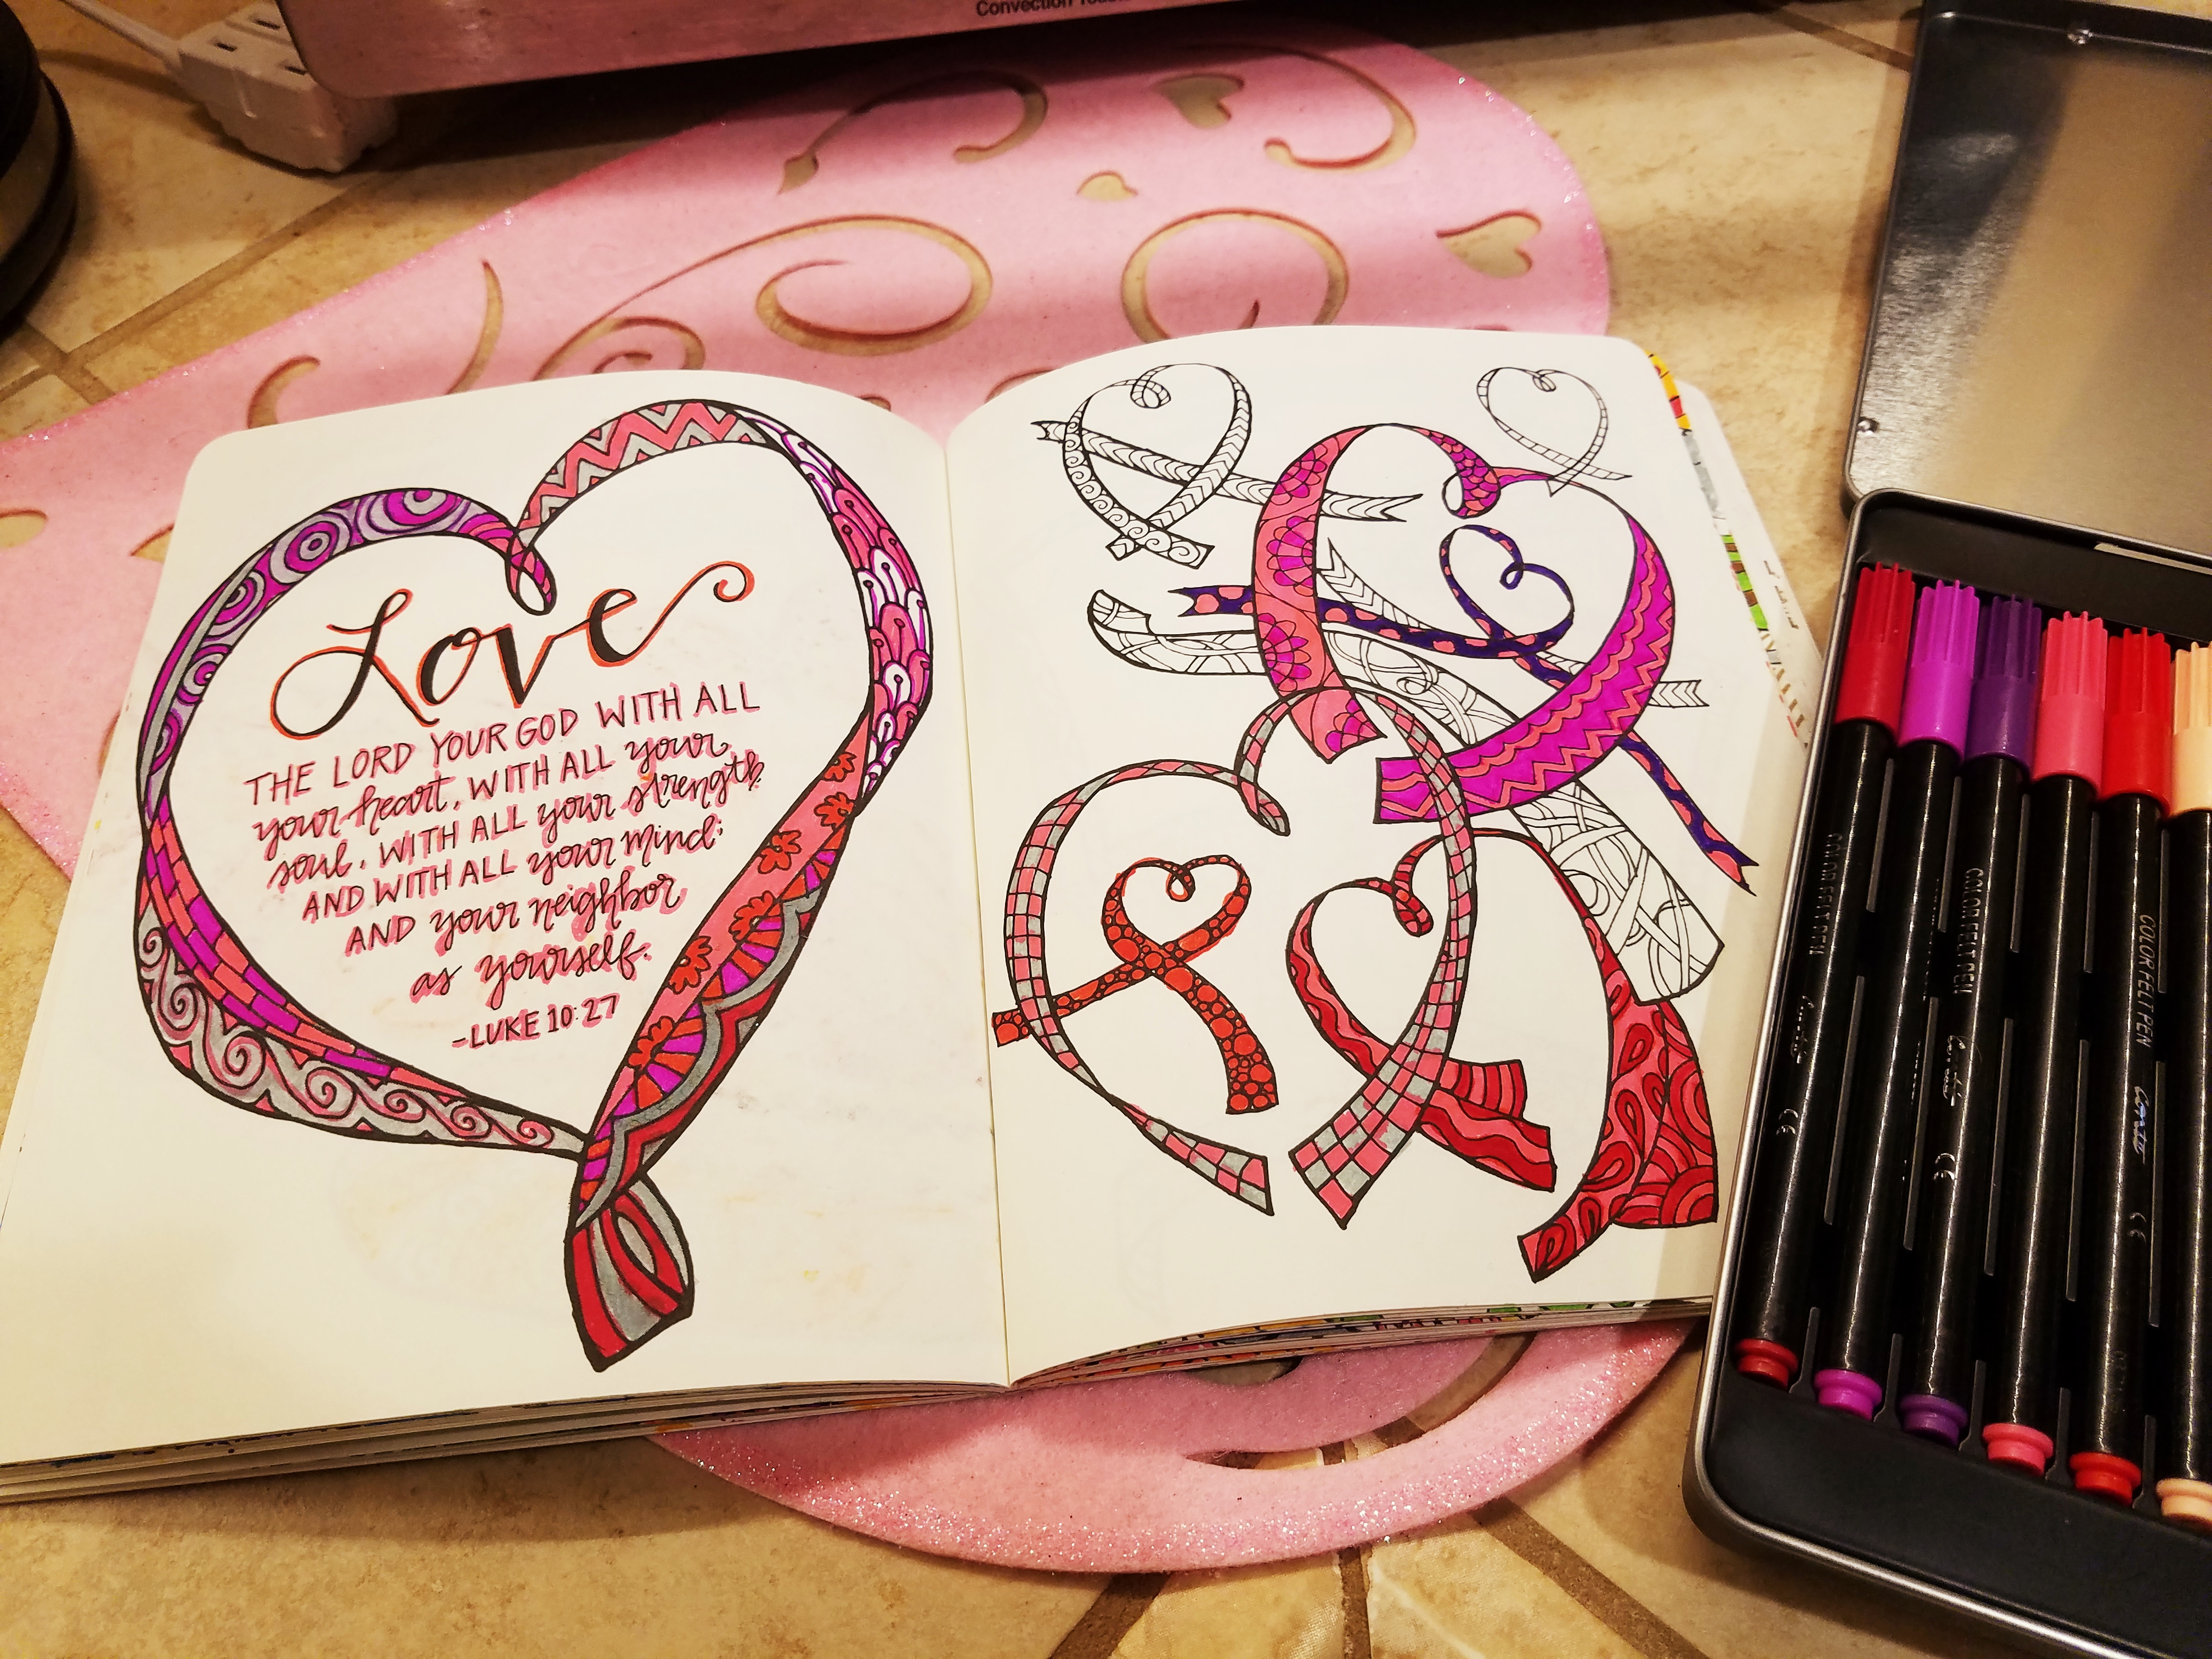 Convection
Love
THE LORD YOUR GOD WITH ALL
your heart, WITH ALL your
soul, WITH ALL your strength,
AND WITH ALL your mind;
AND your neighbor
as yourself.
-LUKE 10:27
COLOR FELT PEN
CE
COLOR FELT PEN
CE
COLOR FELT PEN
CE